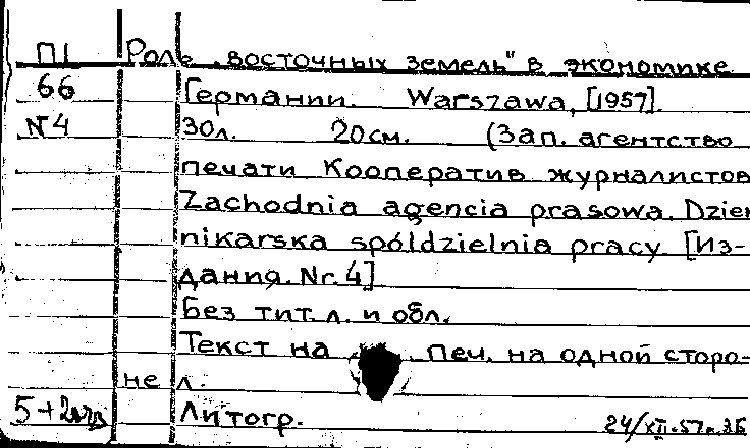 П1 Роль „восточных земель" в экономике
66 Германии. Warszawa, [1957].
N4 30л. 20см. (Зап. агентство
печати Кооператив журналистов
Zachodnia agencia prasowa. Dzien
nikarska spóldzielnia pracy. [Из-
дания. Nr. 4]
Без тит. л. и обл.
Текст на печ. на одной сторо-
не л.
Литогр. 24/XII-57г.